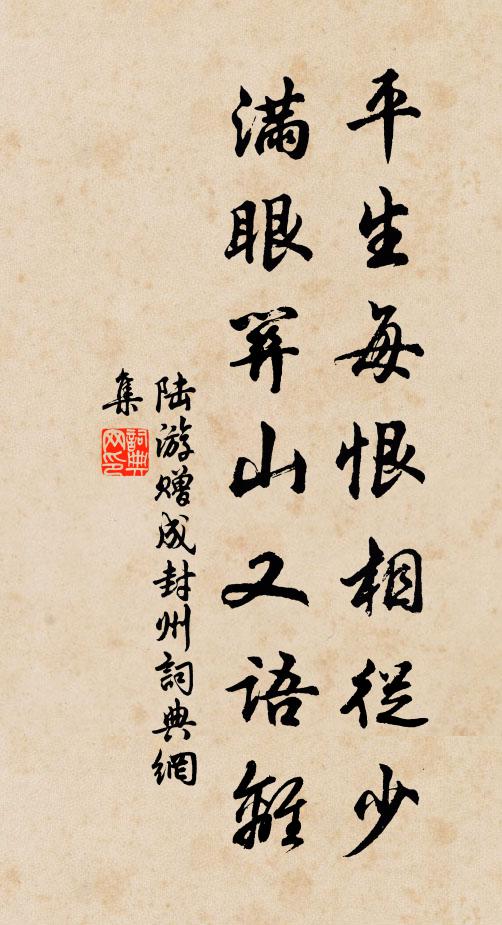 平生每恨相從少
滿眼關山又語離
陆游赠成封州詞典網
集
詞典
网印